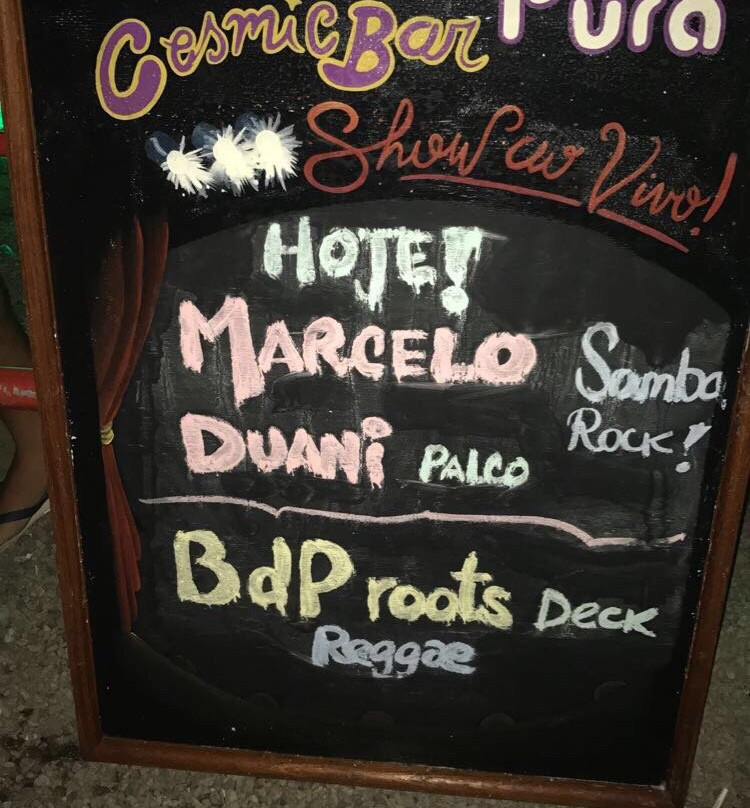 Cosmic Bar Pura
Show ao Vivo!
HOJE!
MARCELO
DUANi PALCO
Samba
Rock!
BdP roots Deck
Reggae